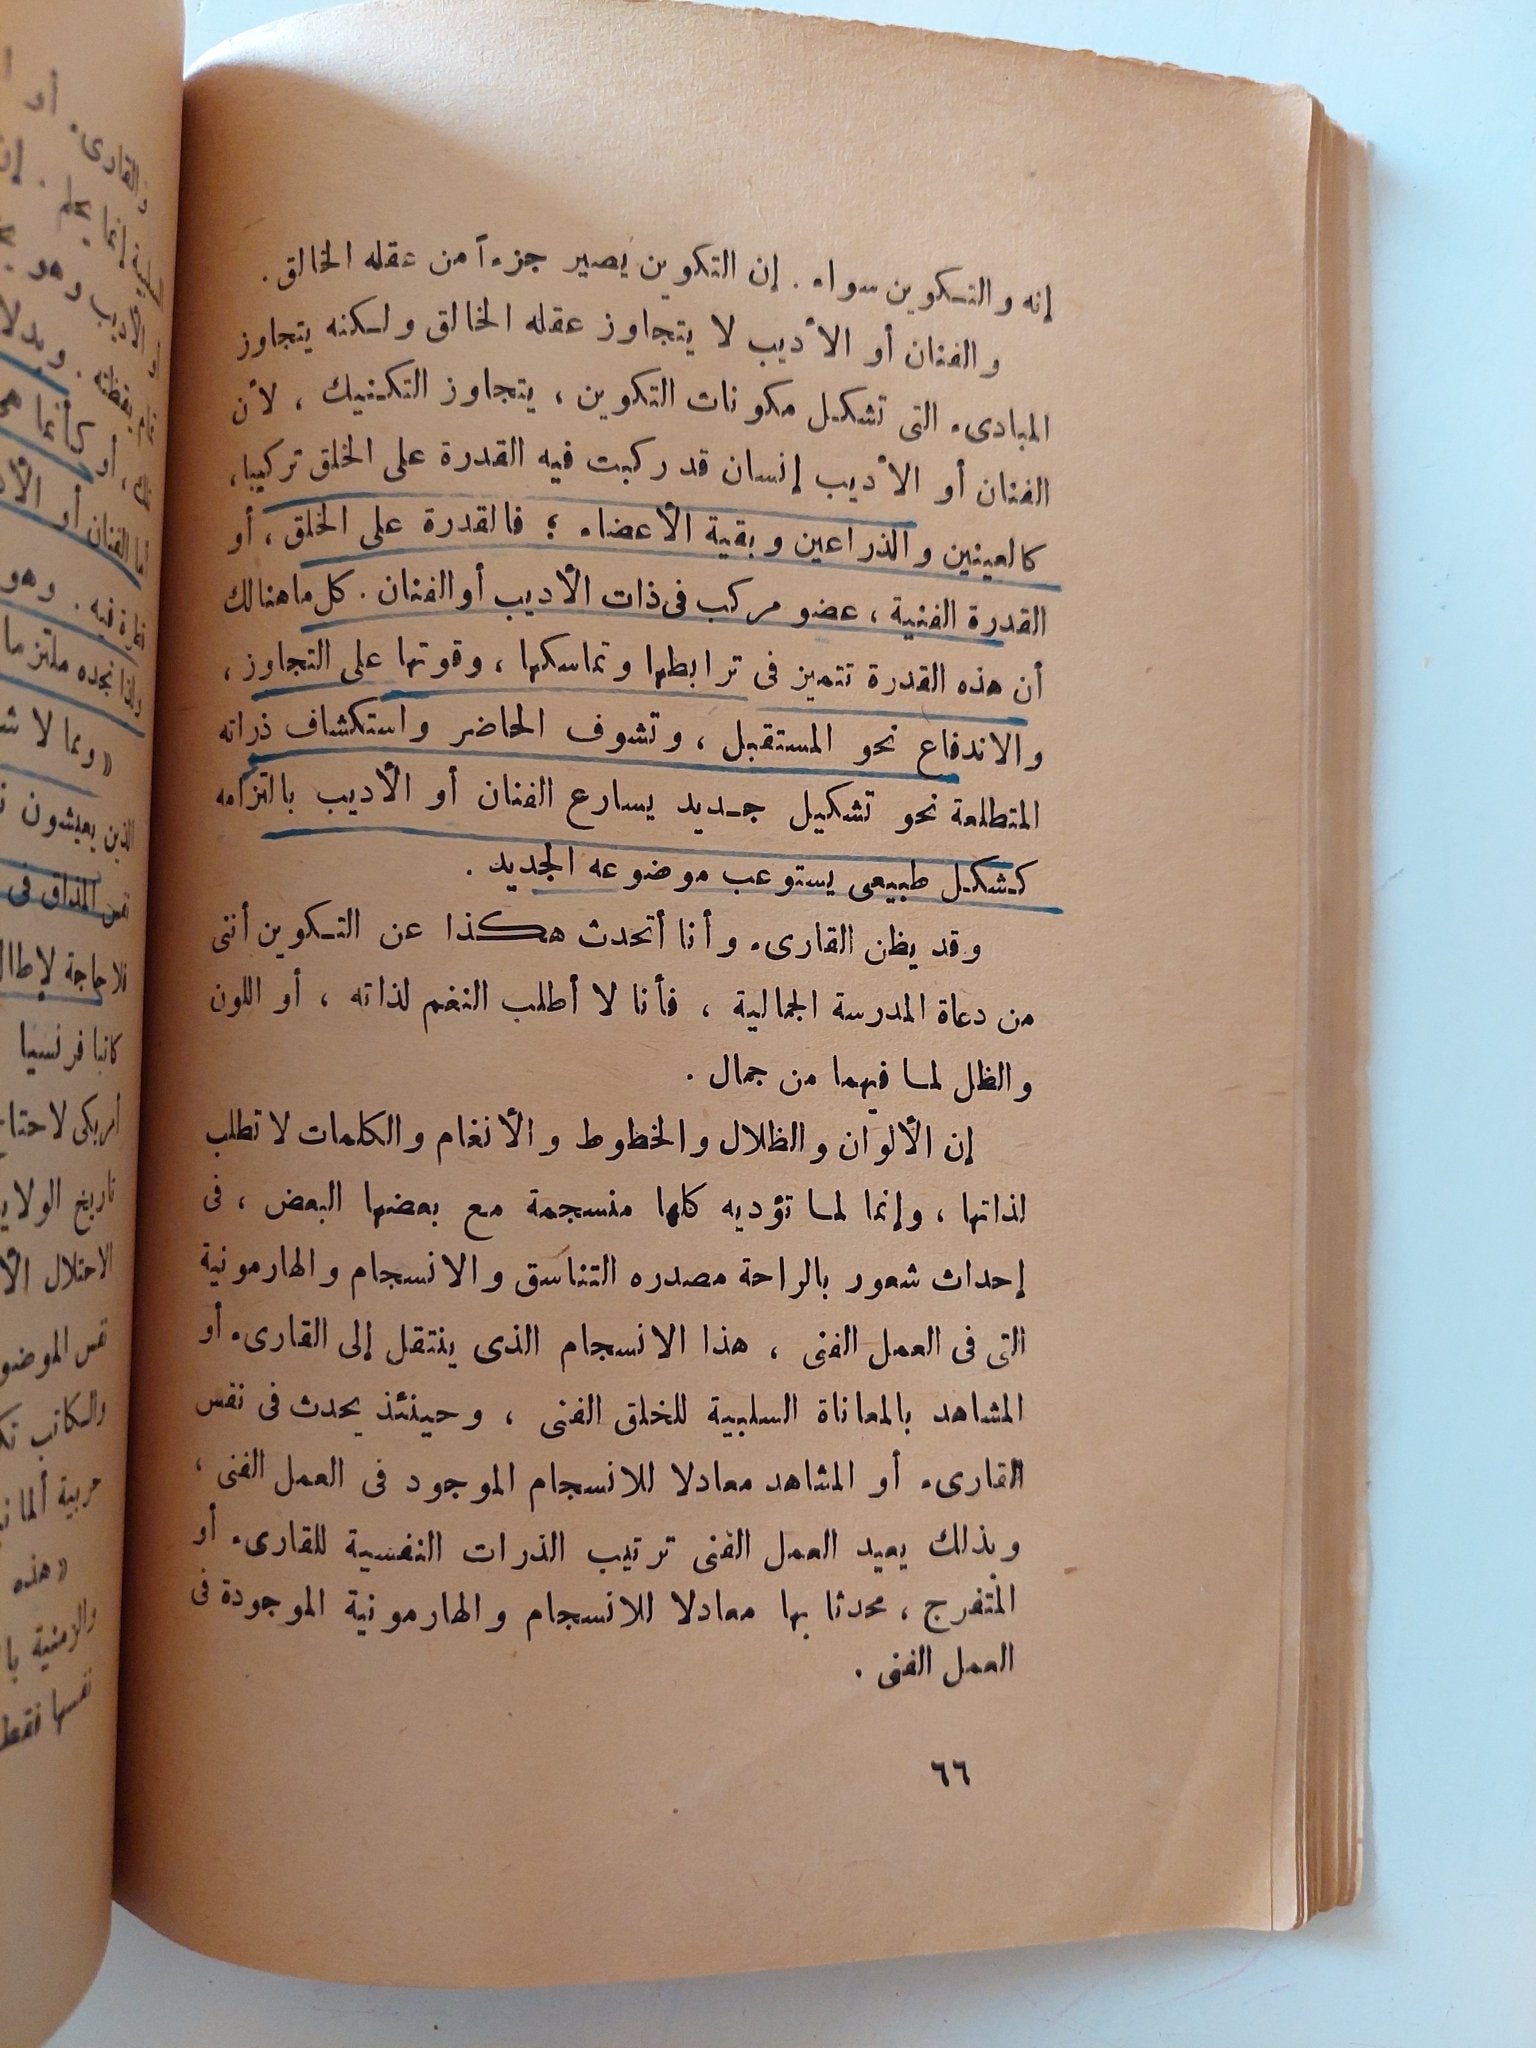 إنه والتكوين سواء . إن التكوين يصير جزءاً من عقله الخالق .
والفنان أو الأديب لا يتجاوز عقله الخالق ولكنه يتجاوز
المبادىء التى تشكل مكونات التكوين ، يتجاوز التكنيك ، لأن
الفنان أو الأديب إنسان قد ركبت فيه القدرة على الخلق تركيبا،
كالعينين والذراعين وبقية الأعضاء ؛ فالقدرة على الخلق ، أو
القدرة الفنية ، عضو مركب فى ذات الأديب أو الفنان . كل ما هنالك
أن هذه القدرة تتميز فى ترابطها وتماسكها ، وقوتها على التجاوز ،
والاندفاع نحو المستقبل ، وتشوف الحاضر واستكشاف ذراته
المتطلعة نحو تشكيل جديد يسارع الفنان أو الأديب بالتزامه
كشكل طبيعى يستوعب موضوعه الجديد .
وقد يظن القارىء وأنا أتحدث هكذا عن التكوين أننى
من دعاة المدرسة الجمالية ، فأنا لا أطلب النغم لذاته ، أو اللون
والظل لما فيهما من جمال .
إن الألوان والظلال والخطوط والأنغام والكلمات لا تطلب
لذاتها ، وإنما لما تؤديه كلها منسجمة مع بعضها البعض ، فى
إحداث شعور بالراحة مصدره التناسق والانسجام والهارمونية
التى فى العمل الفنى ، هذا الانسجام الذى ينتقل إلى القارىء أو
المشاهد بالمعاناة السلبية للخلق الفنى ، وحينئذ يحدث فى نفس
القارىء أو المشاهد معادلا للانسجام الموجود فى العمل الفنى ،
وبذلك يعيد العمل الفنى ترتيب الذرات النفسية للقارىء أو
المتفرج ، محدثا بها معادلا للانسجام والهارمونية الموجودة فى
العمل الفنى .
٦٦